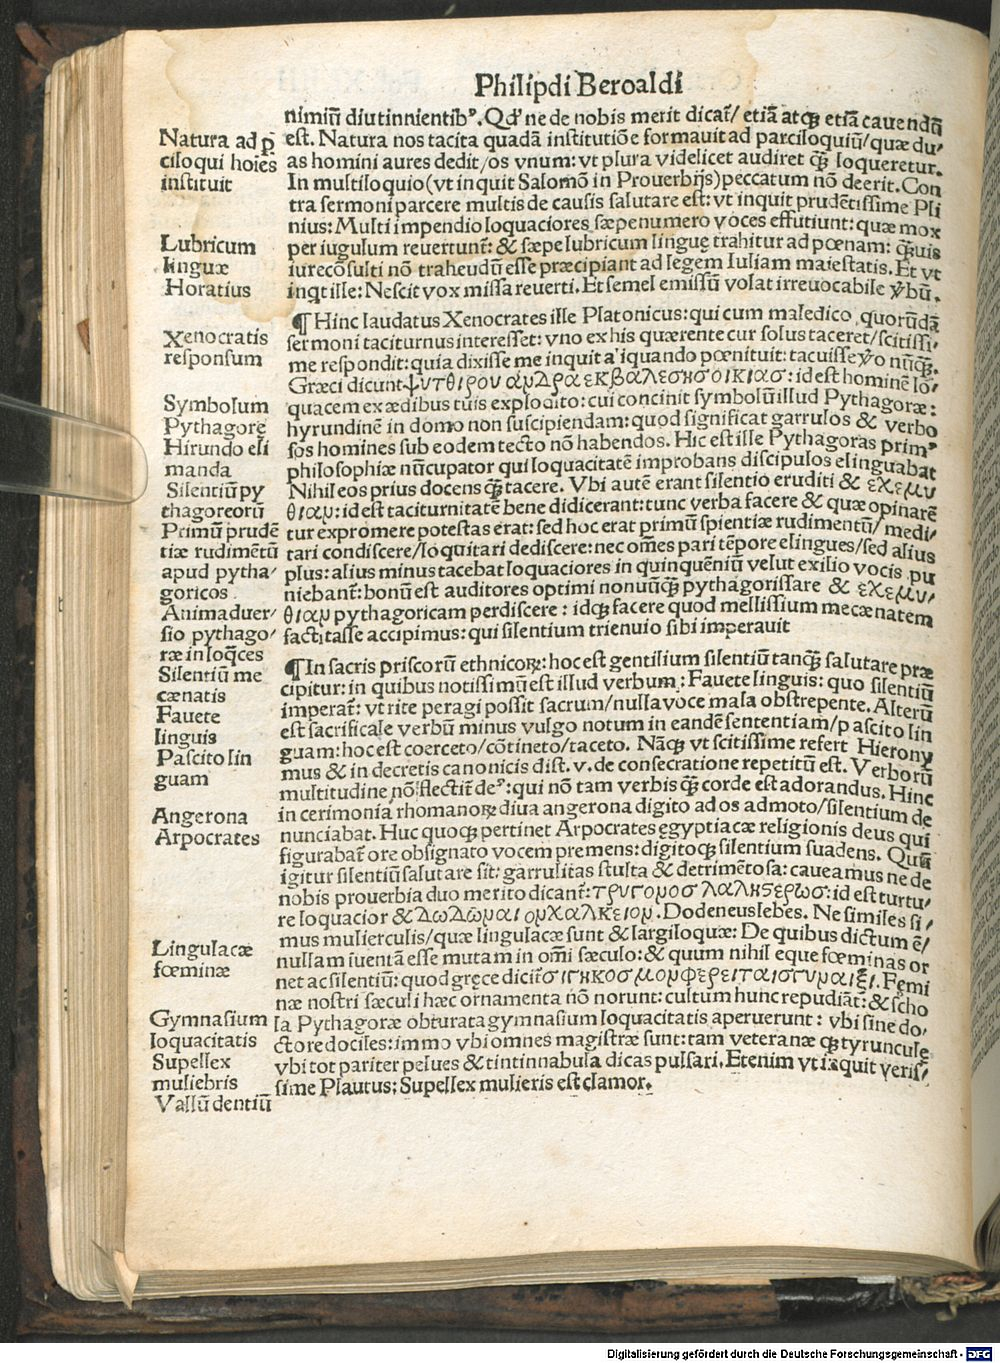 Philippi Beroaldi
nimiū diutinnientibꝰ. Qd' ne de nobis merit dicat̄/ etiā atqꝫ etiā cauendū
est. Natura nos tacita quadā institutiōe formauit ad parciloquiū/ quæ du/
as homini aures dedit/os vnum: vt plura videlicet audiret q̄ꝫ loqueretur.
In multiloquio (vt inquit Salomō in Prouerbijs) peccatum nō deerit. Con
tra sermoni parcere multis de causis salutare est: vt inquit prudētissime Pli
nius: Multi impendio loquaciores sæpenumero voces effutiunt: quæ mox
per iugulum reuertunt̄: & sæpe lubricum linguę trahitur ad pœnam: q̄ꝫuis
iurecōsulti nō trahendū esse præcipiant ad legem Iuliam maiestatis. Et vt
inqt ille: Nescit vox missa reuerti. Et semel emissū volat irreuocabile ꝟbū.
¶ Hinc laudatus Xenocrates ille Platonicus: qui cum maledico quorūdā
sermoni taciturnus interesset: vno ex his quærente cur solus taceret/scitissi/
me respondit: quia dixisse me inquit aliquando pœnituit: tacuisse ꝟo nūq̄ꝫ.
Græci dicunt ψυτθιρου αμδρα εκβαλεσησ οικιασ: id est hominē lo/
quacem ex ædibus tuis explodito: cui concinit symbolū illud Pythagoræ:
hyrundinē in domo non suscipiendam: quod significat garrulos & verbo
sos homines sub eodem tecto nō habendos. Hic est ille Pythagoras primꝰ
philosophiæ nūcupator qui loquacitatē improbans discipulos elinguabat
Nihil eos prius docens q̄ꝫ tacere. Vbi autē erant silentio eruditi & εχεμυ
θιαμ: id est taciturnitatē bene didicerant: tunc verba facere & quæ opinarē
tur expromere potestas erat: sed hoc erat primū spientiæ rudimentū/ medi/
tari condiscere/loquitari dediscere: nec om̄es pari tēpore elingues/sed alius
plus: alius minus tacebat loquaciores in quinquēniū velut exilio vocis pu
niebant̄: bonū est auditores optimi nonnūq̄ꝫ pythagorissare & εχεμυ/
θιαμ pythagoricam perdiscere: idqꝫ facere quod mellissium mecænatem
factitasse accipimus: qui silentium trienuio sibi imperauit
¶ In sacris priscorū ethnicoꝝ: hoc est gentilium silentiū tanq̄ꝫ salutare præ
cipitur: in quibus notissimū est illud verbum: Fauete linguis: quo silentiū
imperat̄: vt rite peragi possit sacrum/nulla voce mala obstrepente. Alterū
est sacrificale verbū minus vulgo notum in eandē sententiam/pascito lin
guam: hoc est coerceto/cōtineto/taceto. Nāqꝫ vt scitissime refert Hierony
mus & in decretis canonicis dist. v. de consecratione repetitū est. Verborū
multitudine nō flectit̄ deꝰ: qui nō tam verbis q̄ꝫ corde est adorandus. Hinc
in cerimonia rhomanoꝝ diua angerona digito ad os admoto/silentium de
nunciabat. Huc quoqꝫ pertinet Arpocrates ęgyptiacæ religionis deus qui
figurabat̄ ore obsignato vocem premens: digitoqꝫ silentium suadens. Quū
igitur silentiū salutare sit: garrulitas stulta & detrimētosa: caueamus ne de
nobis prouerbia duo merito dicant̄: τρυγομοσ λαληςερωσ: id est turtu/
re loquacior & Δωδωμαιομ χαλκειομ. Dodeneus lebes. Ne similes si/
mus mulierculis/quæ lingulacæ sunt & largiloquæ: De quibus dictum ē/
nullam iuentā esse mutam in om̄i sæculo: & quum nihil eque fœminas or
net ac silentiū: quod gręce dicit̄ σιγη κοσμομ φερει ταισ γυμαιξι. Fęmi
næ nostri sæculi hæc ornamenta nō norunt: cultum hunc repudiāt: & scho
la Pythagoræ obturata gymnasium loquacitatis aperuerunt: vbi sine do/
ctore dociles: immo vbi omnes magistræ sunt: tam veteranæ q̄ꝫ tyrunculę
vbi tot pariter pelues & tintinnabula dicas pulsari. Etenim vt inquit veris/
sime Plautus: Supellex mulieris est clamor.
Natura ad p̄
ciloqui hoiēs
instituit
Lubricum
linguæ
Horatius
Xenocratis
responsum
Symbolum
Pythagorę
Hirundo eli
manda
Silentiū py
thagoreorū
Primū prudē
tiæ rudimētū
apud pytha/
goricos
Animaduer/
sio pythago/
ræ in loq̄ces
Silentiū me
cænatis
Fauete
linguis
Pascito lin
guam
Angerona
Arpocrates
Lingulacæ
fœminæ
Gymnasium
loquacitatis
Supellex
muliebris
Vallū dentiū
Digitalisierung gefördert durch die Deutsche Forschungsgemeinschaft - DFG